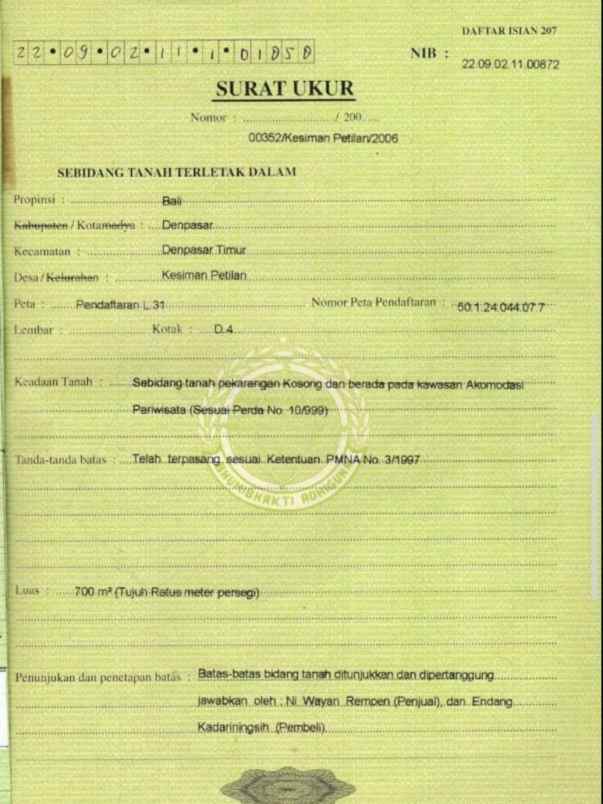 DAFTAR ISIAN 207
22.09.02.11.1.01858
NIB :
22.09.02.11.00872
SURAT UKUR
Nomor : ............................../ 200......
00352/Kesiman Petilan/2006
SEBIDANG TANAH TERLETAK DALAM
Propinsi : Bali
Kabupaten / Kotamadya : Denpasar
Kecamatan : Denpasar Timur
Desa / Kelurahan : Kesiman Petilan
Peta : Pendaftaran L.31 Nomor Peta Pendaftaran : 50.1.24.044.07.7
Lembar : Kotak : D.4
Keadaan Tanah : Sebidang tanah pekarangan Kosong dan berada pada kawasan Akomodasi
Pariwisata (Sesuai Perda No. 10/999)
Tanda-tanda batas : Telah terpasang sesuai Ketentuan PMNA No. 3/1997
BHUMIBHAKTI ADHIGUNA
Luas : 700 m² (Tujuh Ratus meter persegi)
Penunjukan dan penetapan batas : Batas-batas bidang tanah ditunjukkan dan dipertanggung
jawabkan oleh : Ni Wayan Rempen (Penjual), dan Endang
Kadariningsih (Pembeli)